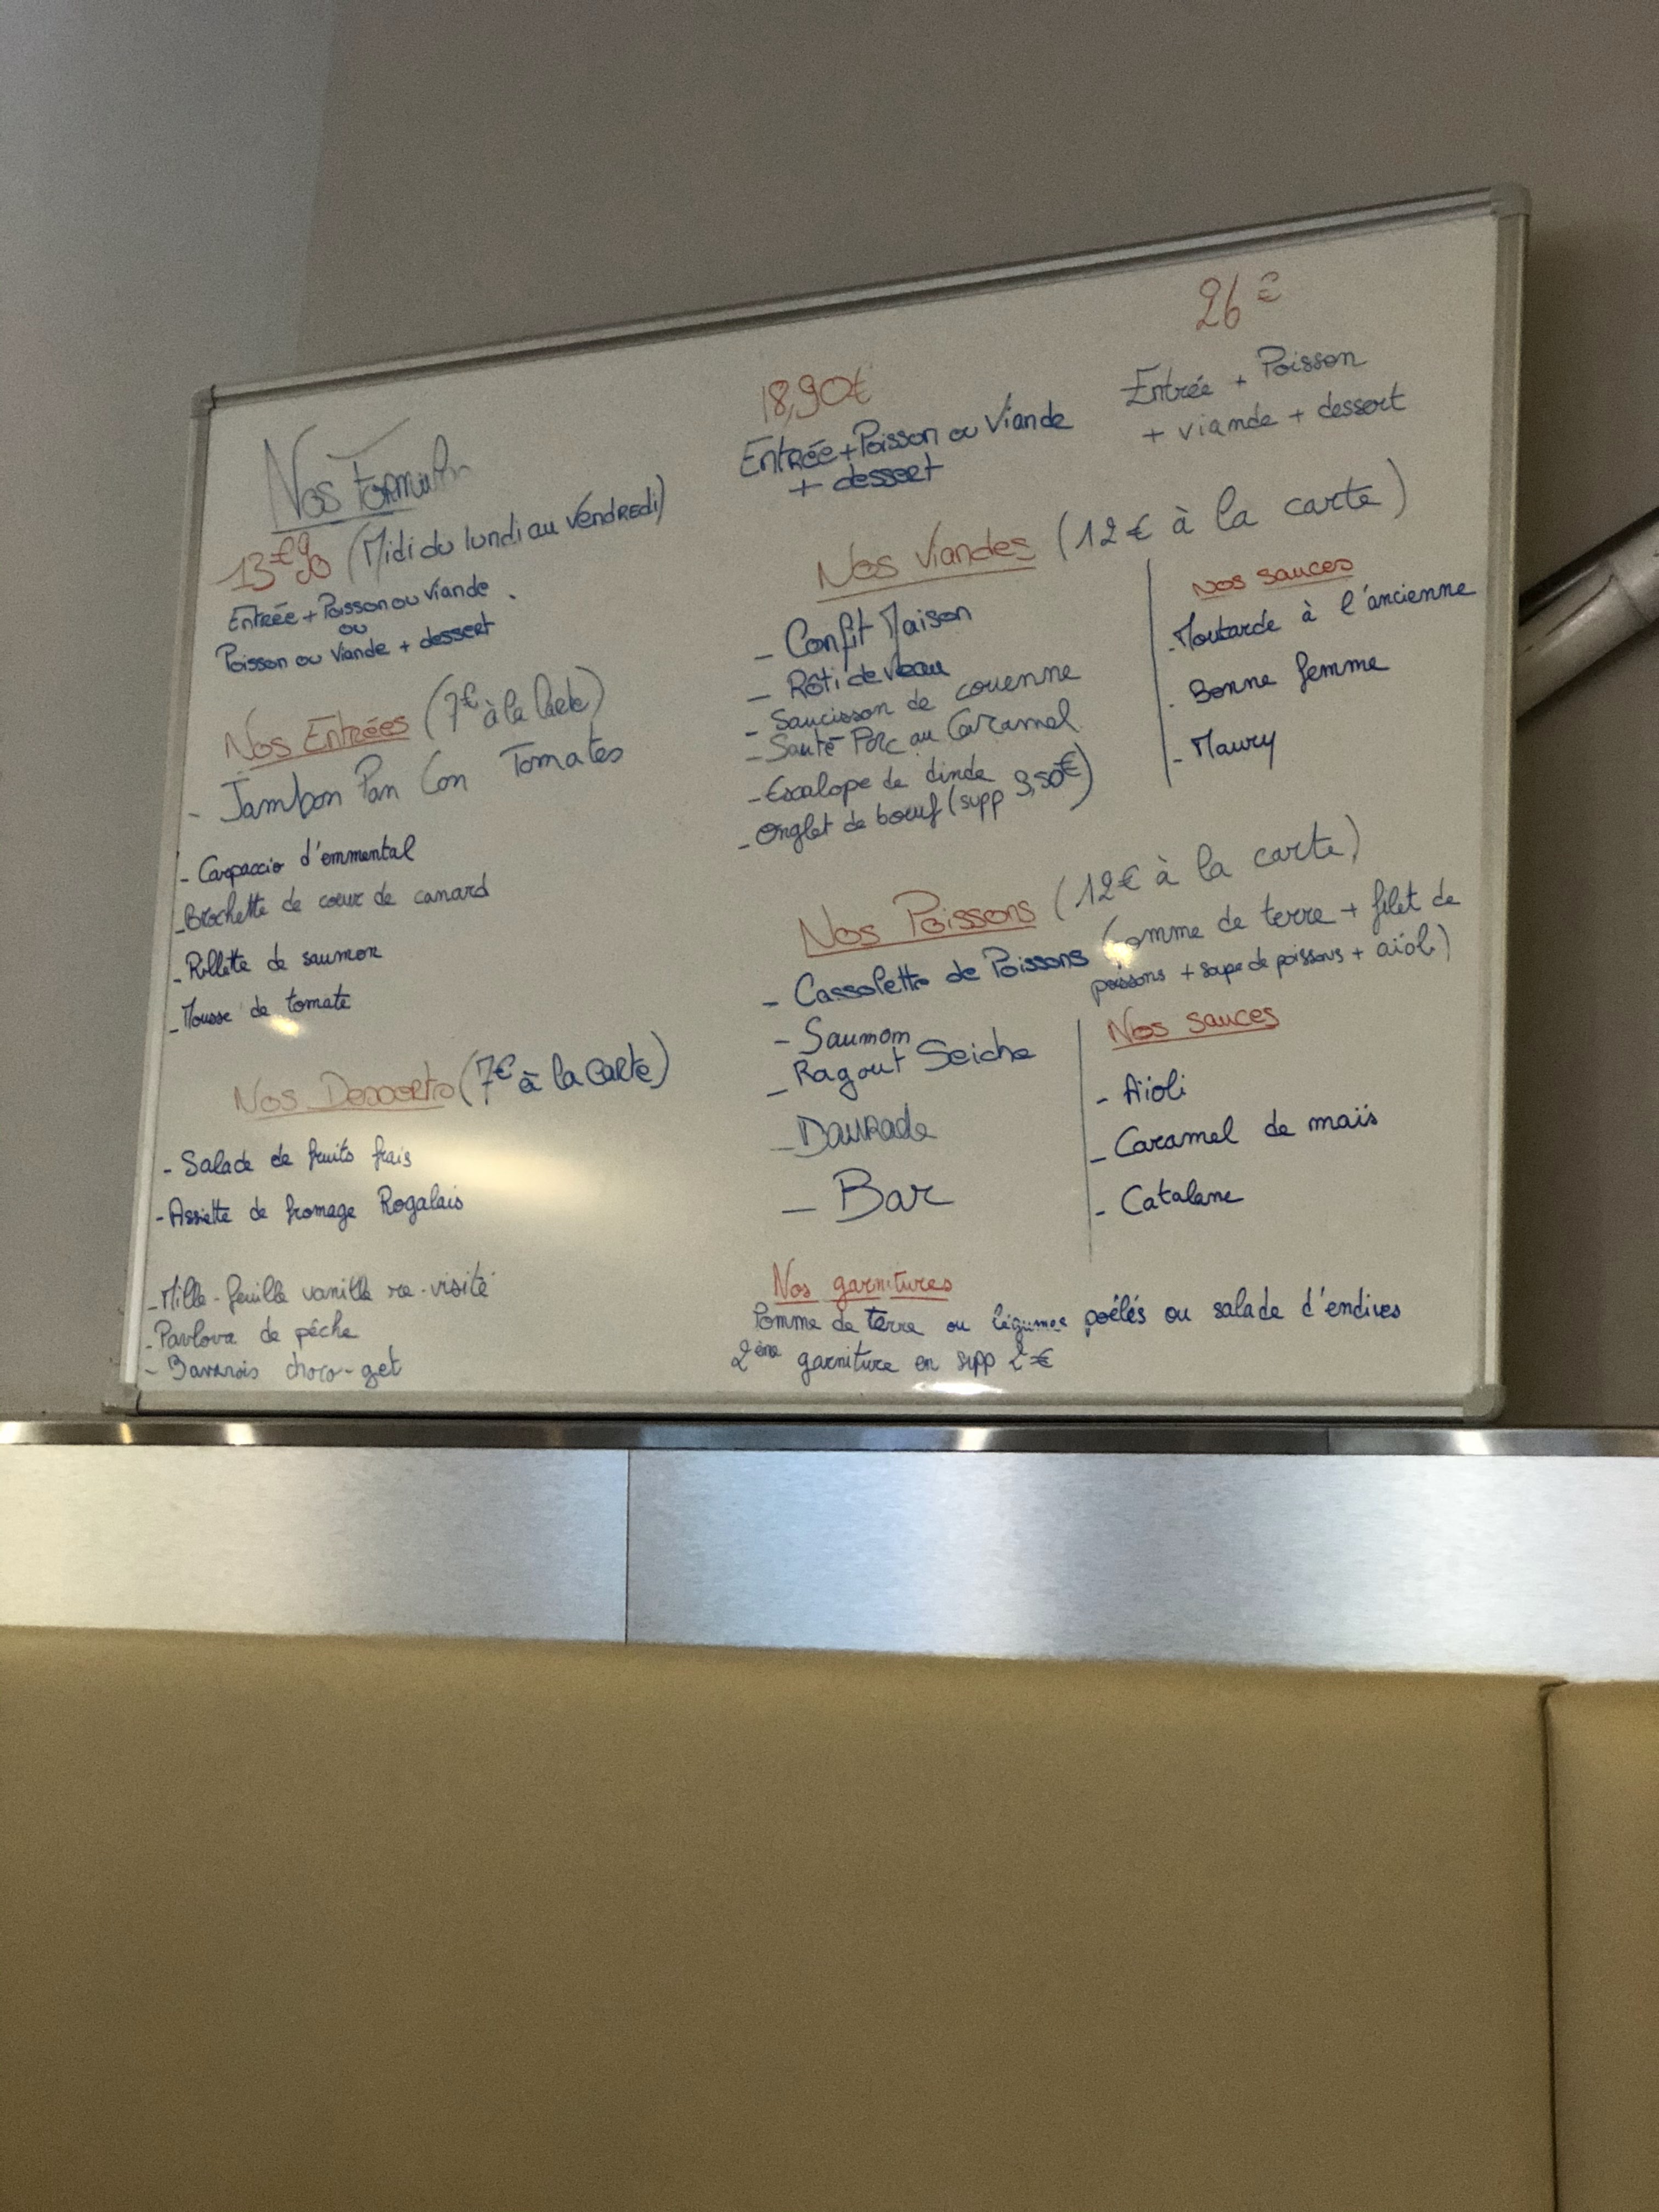 Nos Formules
13€90 (Midi du lundi au Vendredi)
Entrée + Poisson ou Viande
ou
Poisson ou Viande + dessert
18,90€
Entrée + Poisson ou Viande
+ dessert
26€
Entrée + Poisson
+ viande + dessert
Nos Entrées (7€ à la Carte)
- Jambon Pan Con Tomates
- Carpaccio d'emmental
- Brochette de cœur de canard
- Rillette de saumon
- Mousse de tomate
Nos Desserts (7€ à la Carte)
- Salade de fruits frais
- Assiette de fromage Rogalais
- Mille-feuille vanille re-visité
- Pavlova de pêche
- Bavarois choco-get
Nos Viandes (12€ à la carte)
- Confit Maison
- Rôti de veau
- Saucisson de couenne
- Sauté Porc au Caramel
- Escalope de dinde
- Onglet de bœuf (supp 3,50€)
Nos sauces
- Moutarde à l'ancienne
- Bonne femme
- Maury
Nos Poissons (12€ à la carte)
- Cassolette de Poissons (Pomme de terre + filet de
poissons + soupe de poissons + aïoli)
- Saumon
- Ragout Seiche
- Daurade
- Bar
Nos sauces
- Aïoli
- Caramel de maïs
- Catalane
Nos garnitures
Pomme de terre ou légumes poêlés ou salade d'endives
2ème garniture en supp 2€